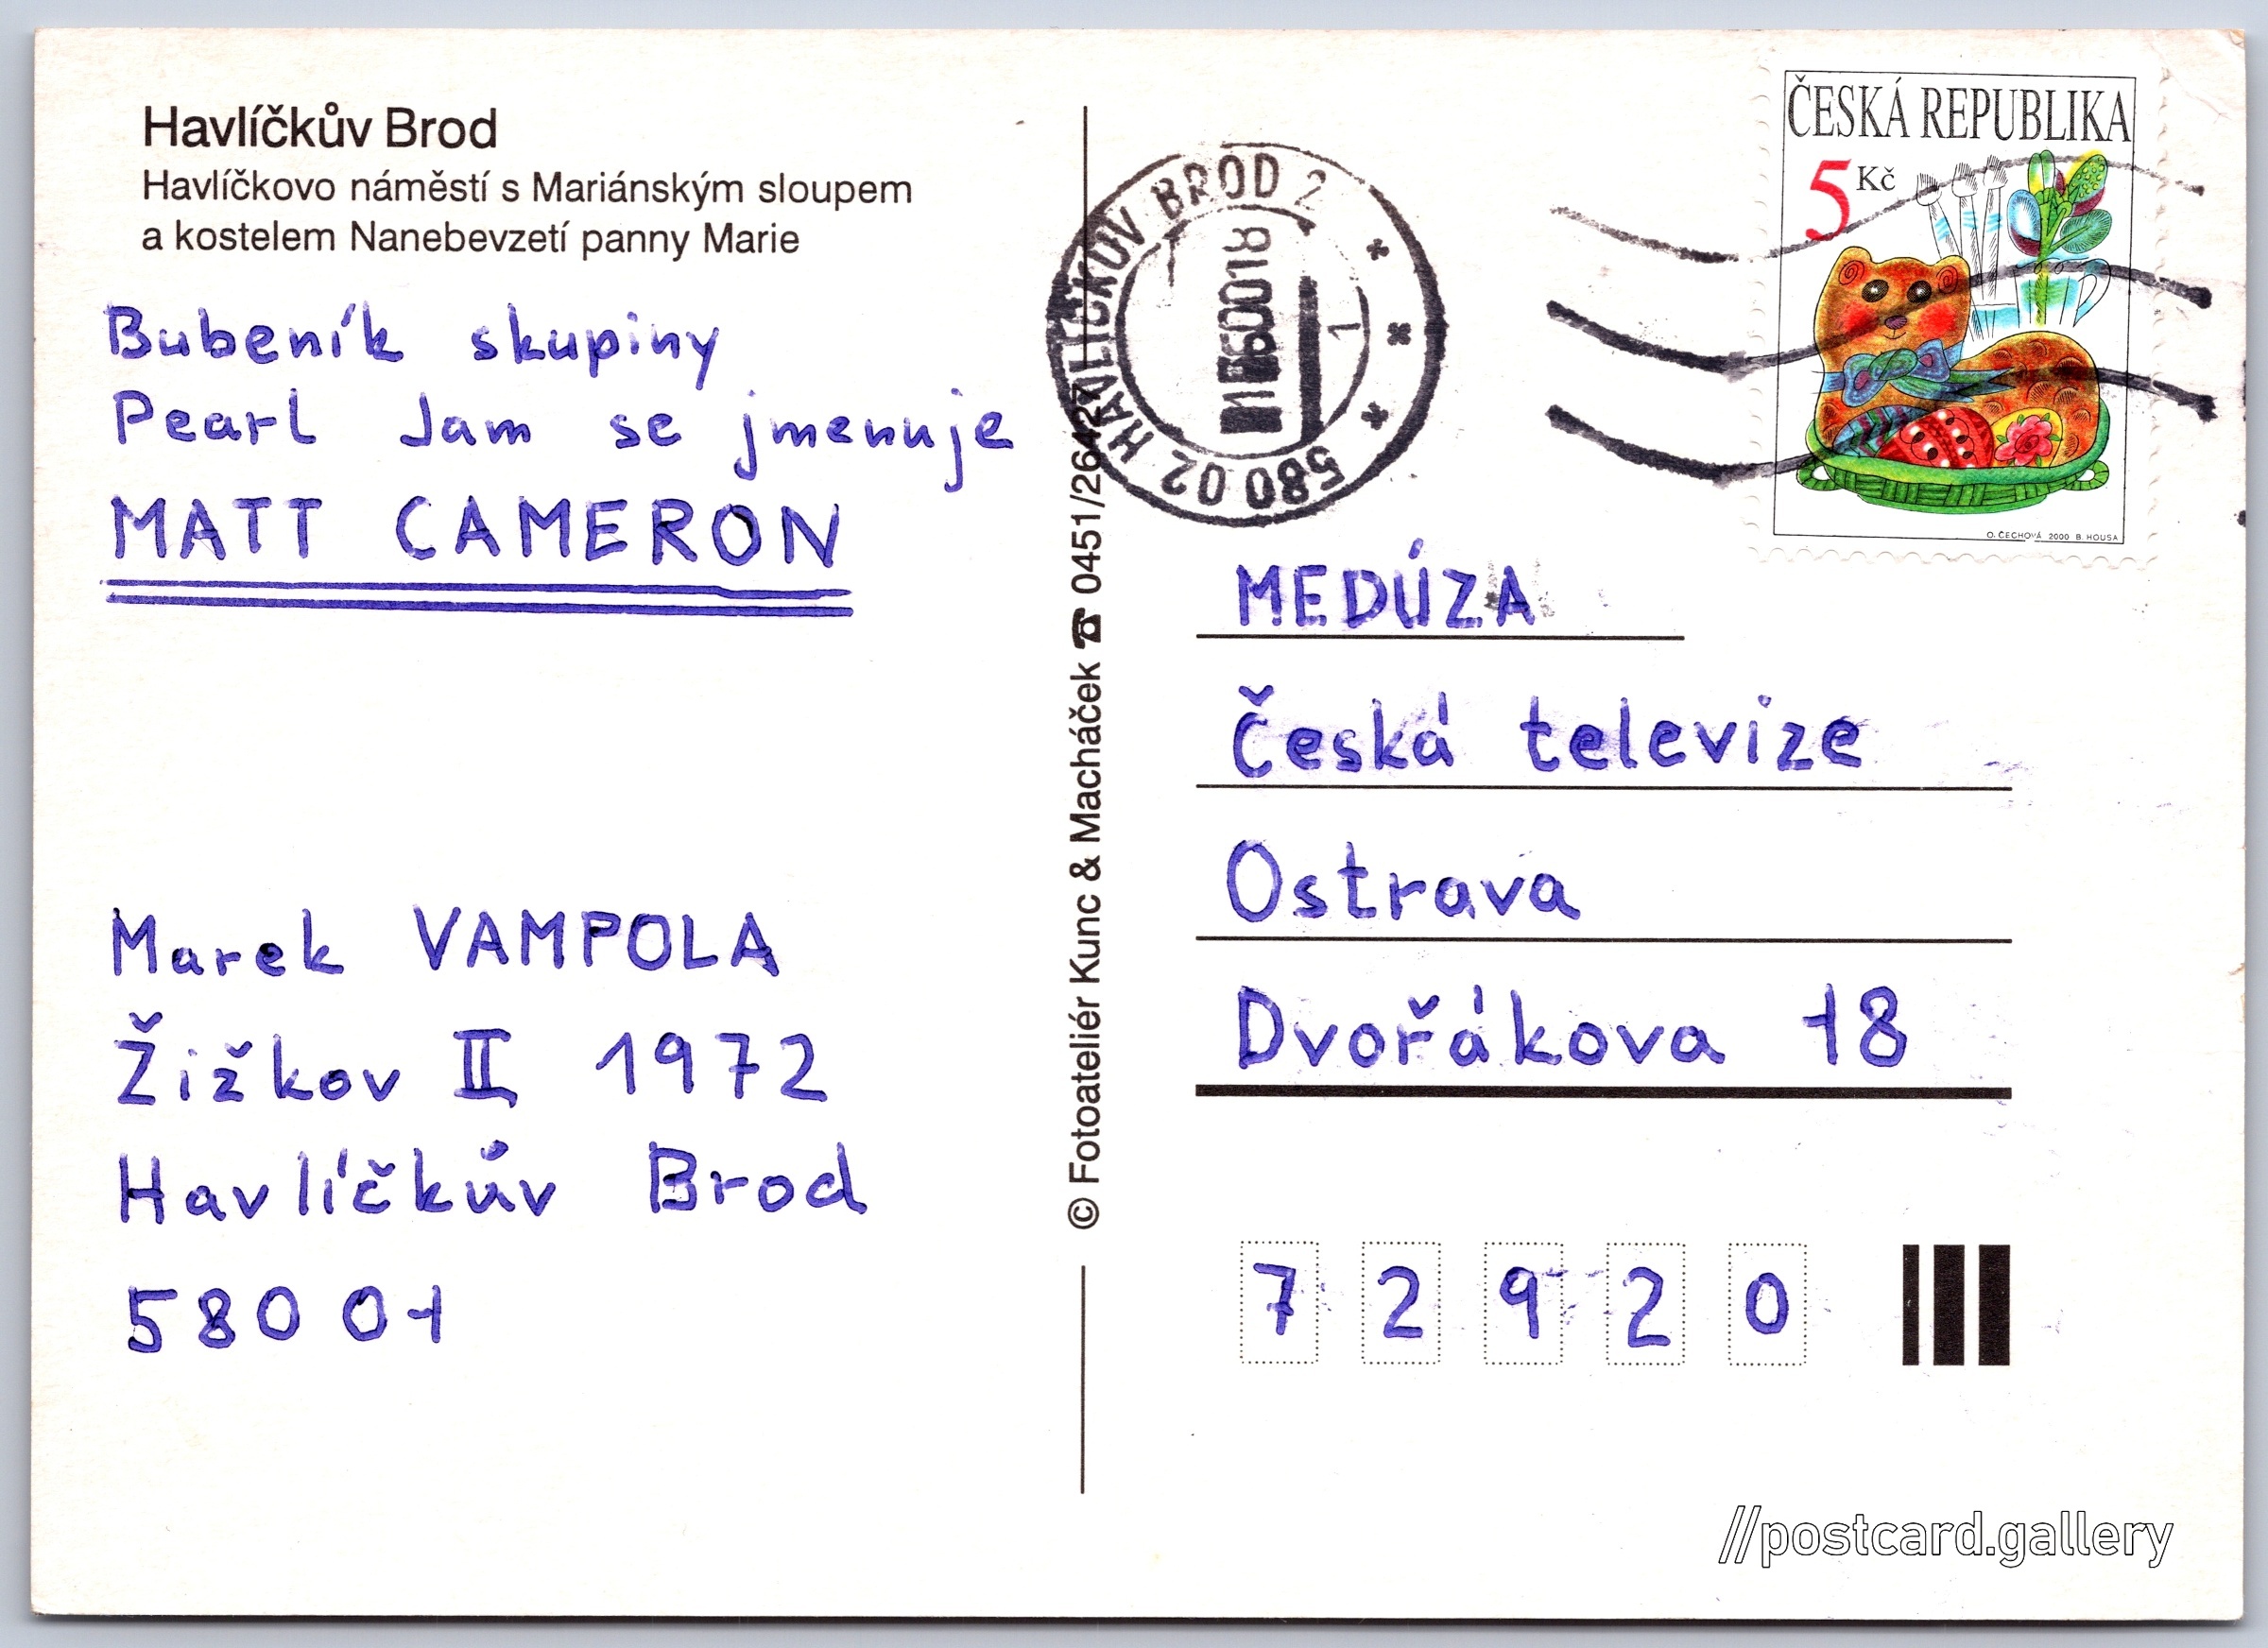 Havlíčkův Brod
Havlíčkovo náměstí s Mariánským sloupem
a kostelem Nanebevzetí panny Marie
Bubeník skupiny
Pearl Jam se jmenuje
MATT CAMERON
Marek VAMPOLA
Žižkov II 1972
Havlíčkův Brod
580 01
© Fotoateliér Kunc & Macháček ☎ 0451/26427
580 02 HAVLÍČKŮV BROD 2
1
ČESKÁ REPUBLIKA
5 Kč
O. ČECHOVÁ 2000 B. HOUSA
MEDÚZA
Česká televize
Ostrava
Dvořákova 18
7 2 9 2 0
//postcard.gallery